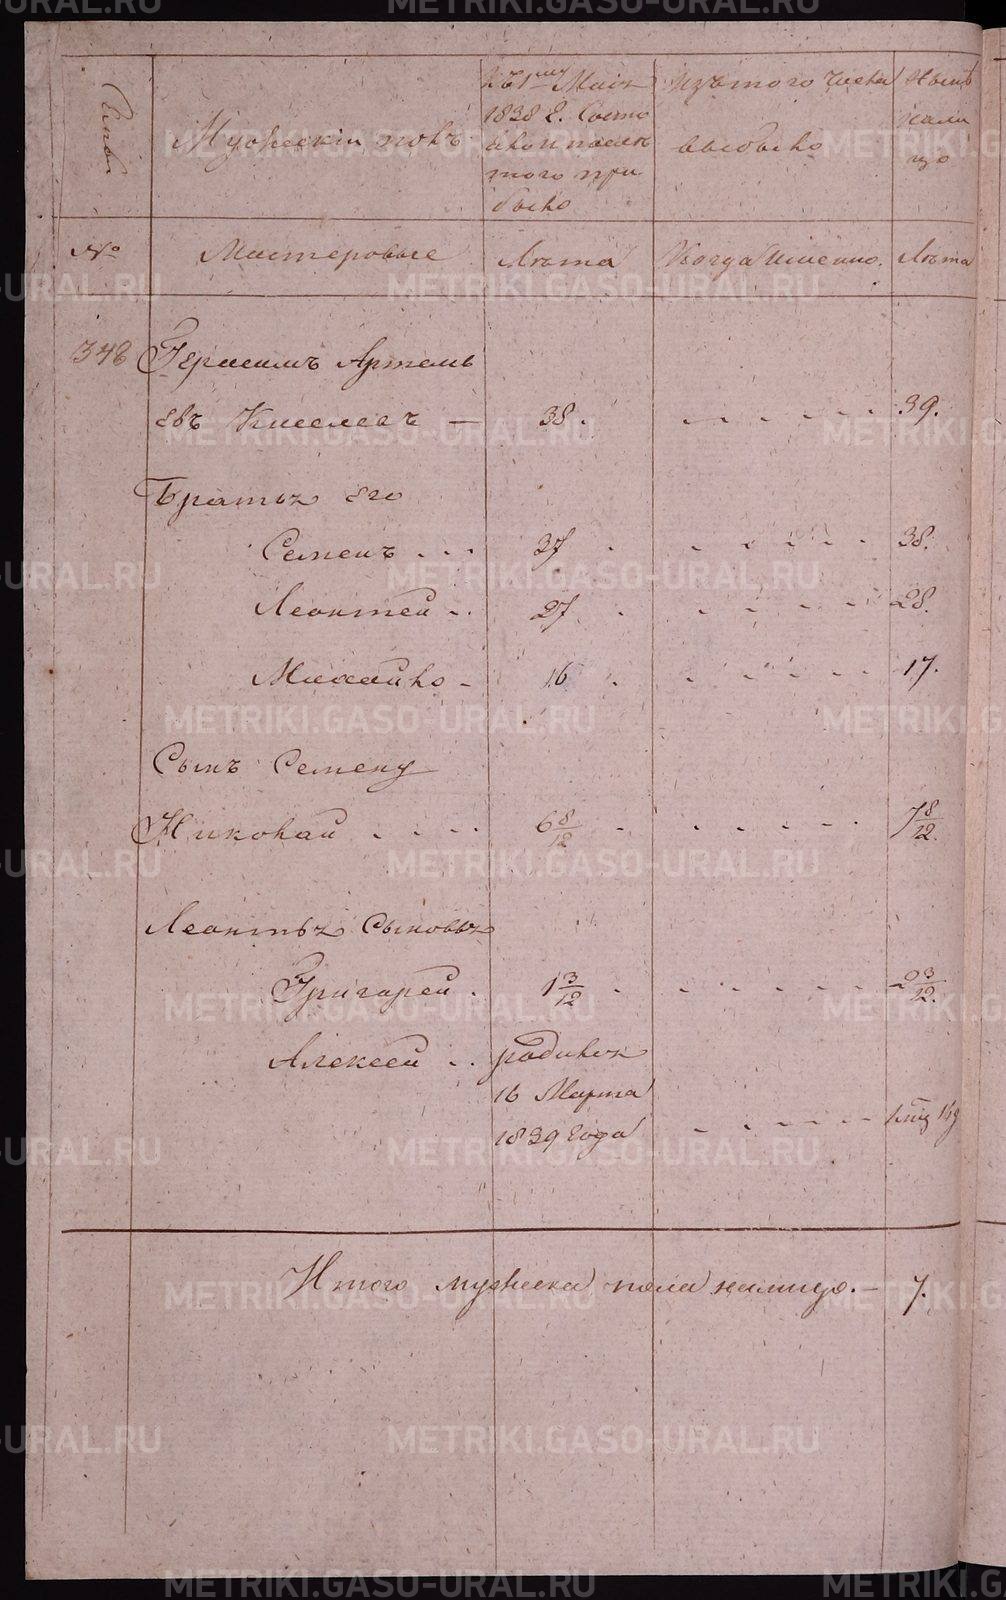 Семьи
Мужескiй полъ
Къ 1му Мая
1838 г. Состо
яло и после
того при
было
Изъ того числа
выбыло
Ныне
нали
цо
№
Мастеровые
Лета
Когда Именно.
Лета
348
Герасимъ Артемь
евъ Киселевъ —
38.
39.
Братья его
Семенъ
37
38.
Леонтей
27
28.
Михайло
16
17.
Сынъ Семену
Николай
6 8/12
7 8/12.
Леонтья Сыновья
Григорей
1 3/12
2 3/12.
Алексей
родился
16 Марта
1839 года
Итого мужеска пола налицо. — 7.
METRIKI.GASO-URAL.RU